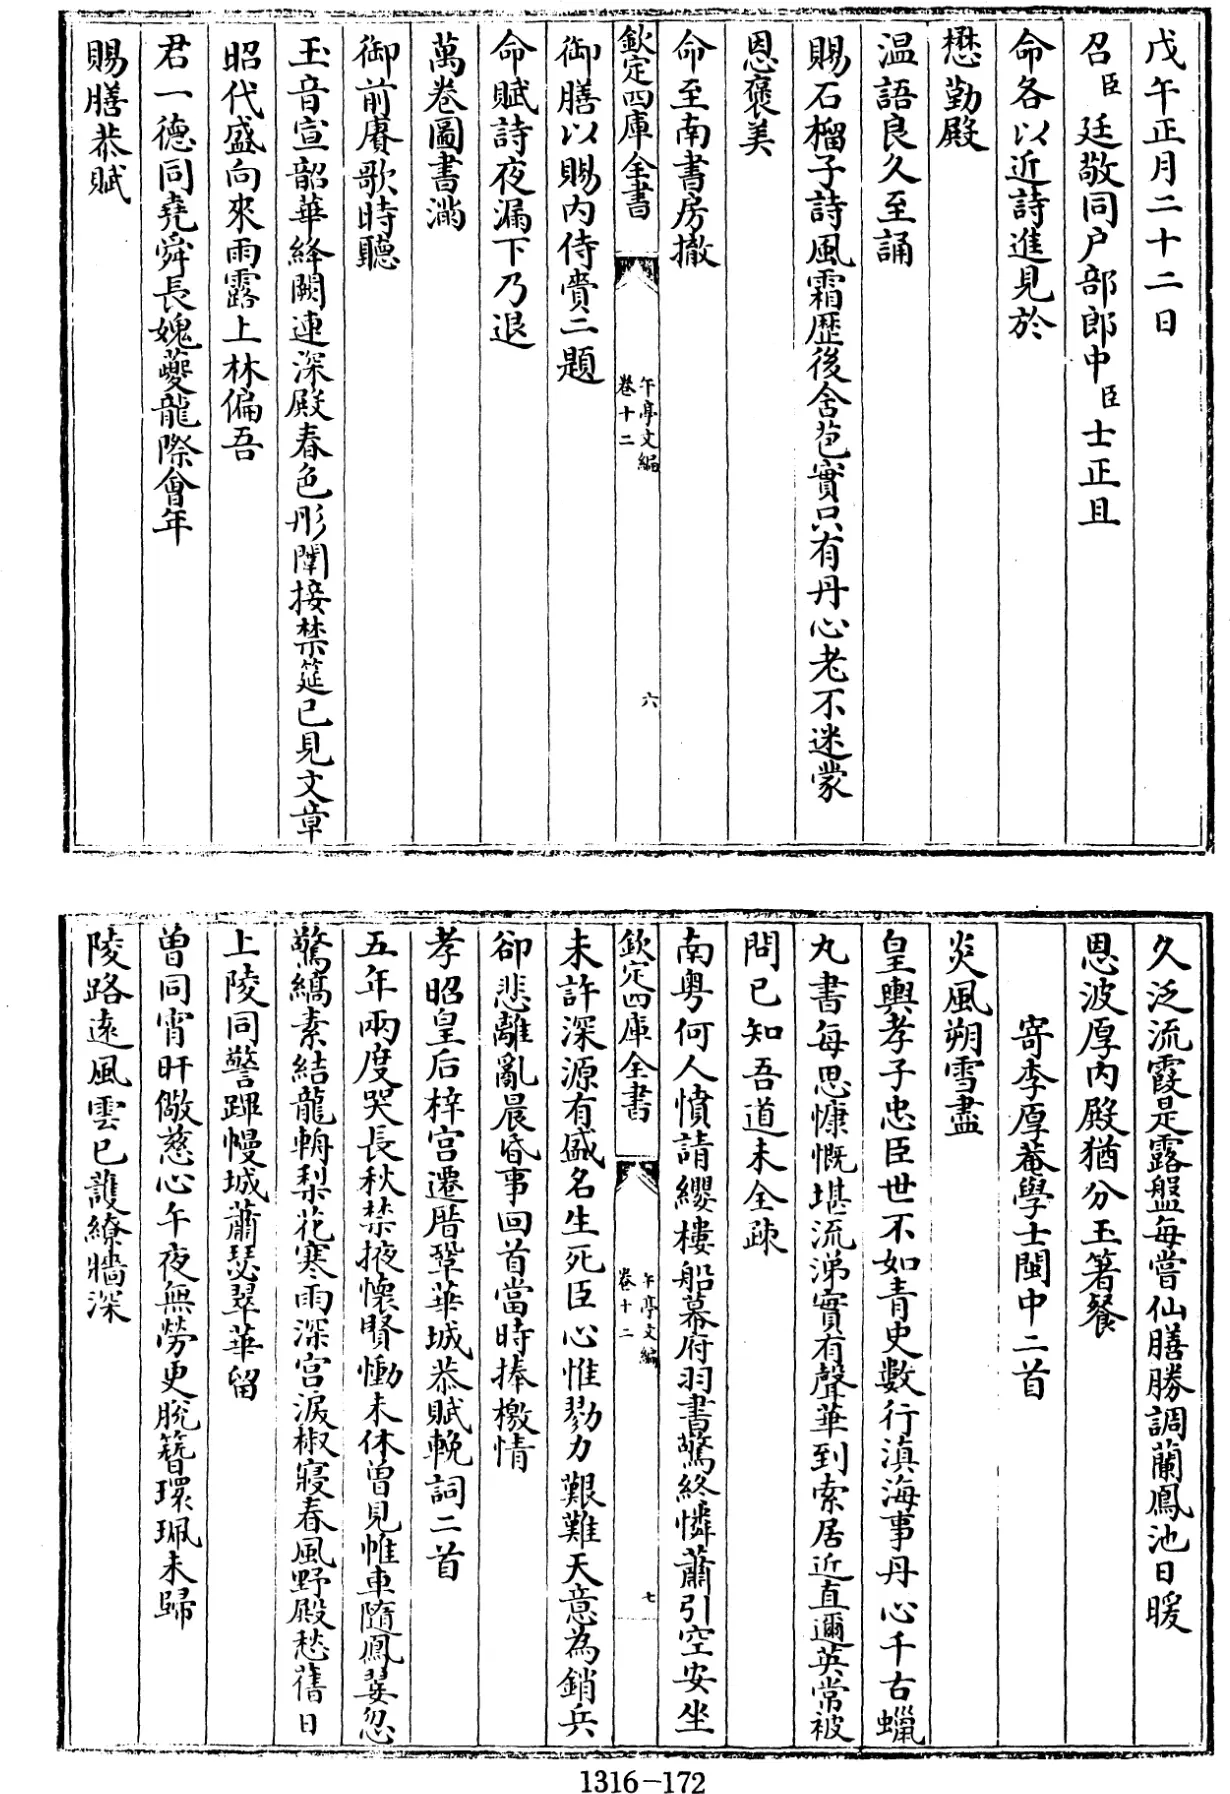 戊午正月二十二日
召臣廷敬同户部郎中臣士正且
命各以近詩進見於
懋勤殿
温語良久至誦
賜石榴子詩風霜歷後含苞實只有丹心老不迷蒙
恩褒美
命至南書房撤
欽定四庫全書
午亭文編
卷十二
六
御膳以賜内侍賫二題
命賦詩夜漏下乃退
萬卷圖書滿
御前賡歌時聽
玉音宣韶華絳闕連深殿春色彤闈接禁筵已見文章
昭代盛向來雨露上林偏吾
君一德同堯舜長媿夔龍際會年
賜膳恭賦
久泛流霞是露盤每嘗仙膳勝調蘭鳳池日暖
恩波厚内殿猶分玉箸餐
寄李厚菴學士閩中二首
炎風朔雪盡
皇輿孝子忠臣世不如青史數行滇海事丹心千古蠟
丸書每思慷慨堪流涕實有聲華到索居近直邇英常被
問已知吾道未全疎
南粤何人憤請纓樓船幕府羽書驚終憐蕭引空安坐
欽定四庫全書
午亭文編
卷十二
七
未許深源有盛名生死臣心惟勠力艱難天意為銷兵
卻悲離亂晨昏事回首當時捧檄情
孝昭皇后梓宫遷厝鞏華城恭賦輓詞二首
五年兩度哭長秋禁掖懷賢慟未休曾見帷車隨鳳翣忽
驚縞素結龍輈梨花寒雨深宫淚椒寢春風野殿愁舊日
上陵同警蹕幔城蕭瑟翠華留
曾同宵旰儆慈心午夜無勞更脫簪環珮未歸
陵路遠風雲已護繚牆深
1316-172